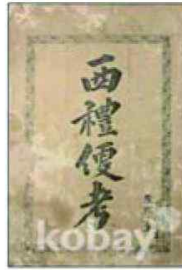 西禮便考
kobay